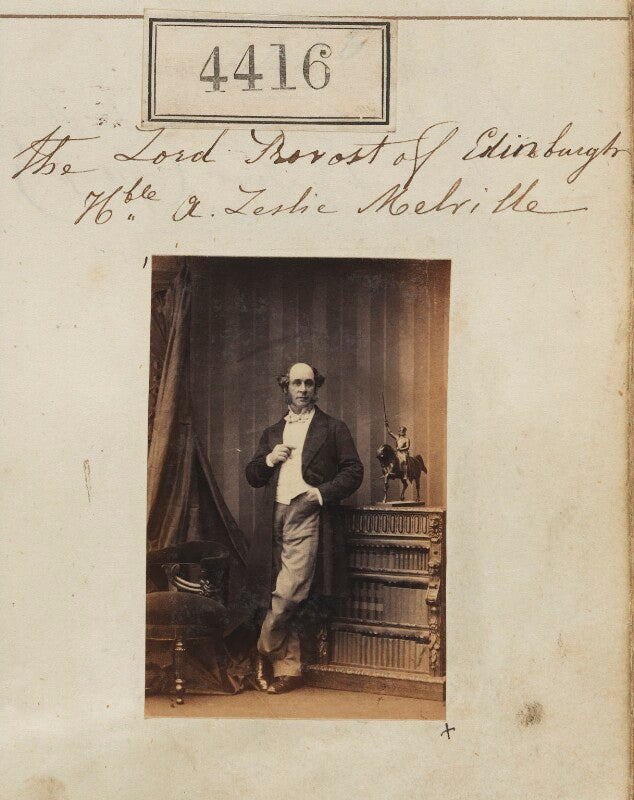 4416
The Lord Provost of Edinburgh
Hble A. Leslie Melville